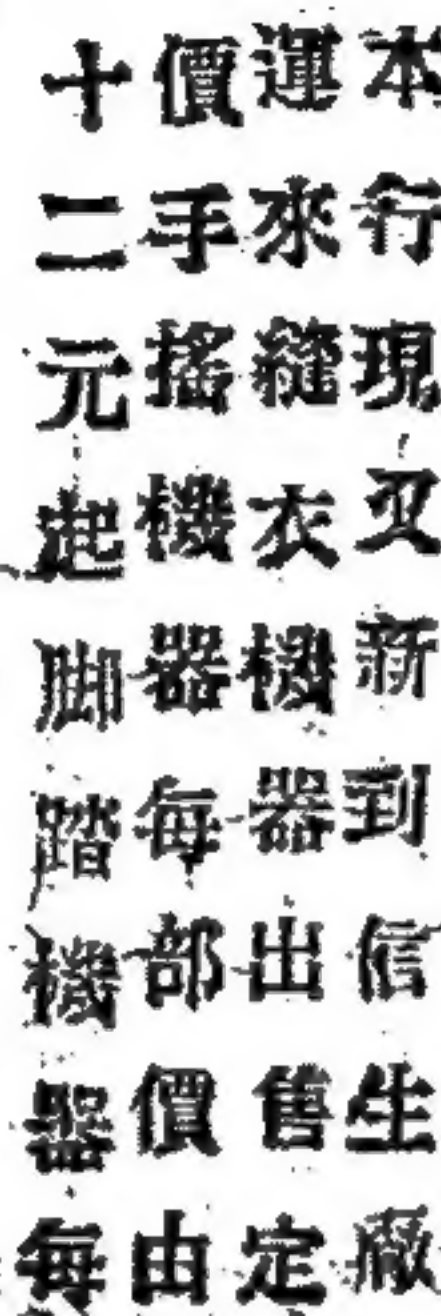 本行現又新到信生廠
運來縫衣機器出售定
價手搖機器每部價由
十二元起脚踏機器每